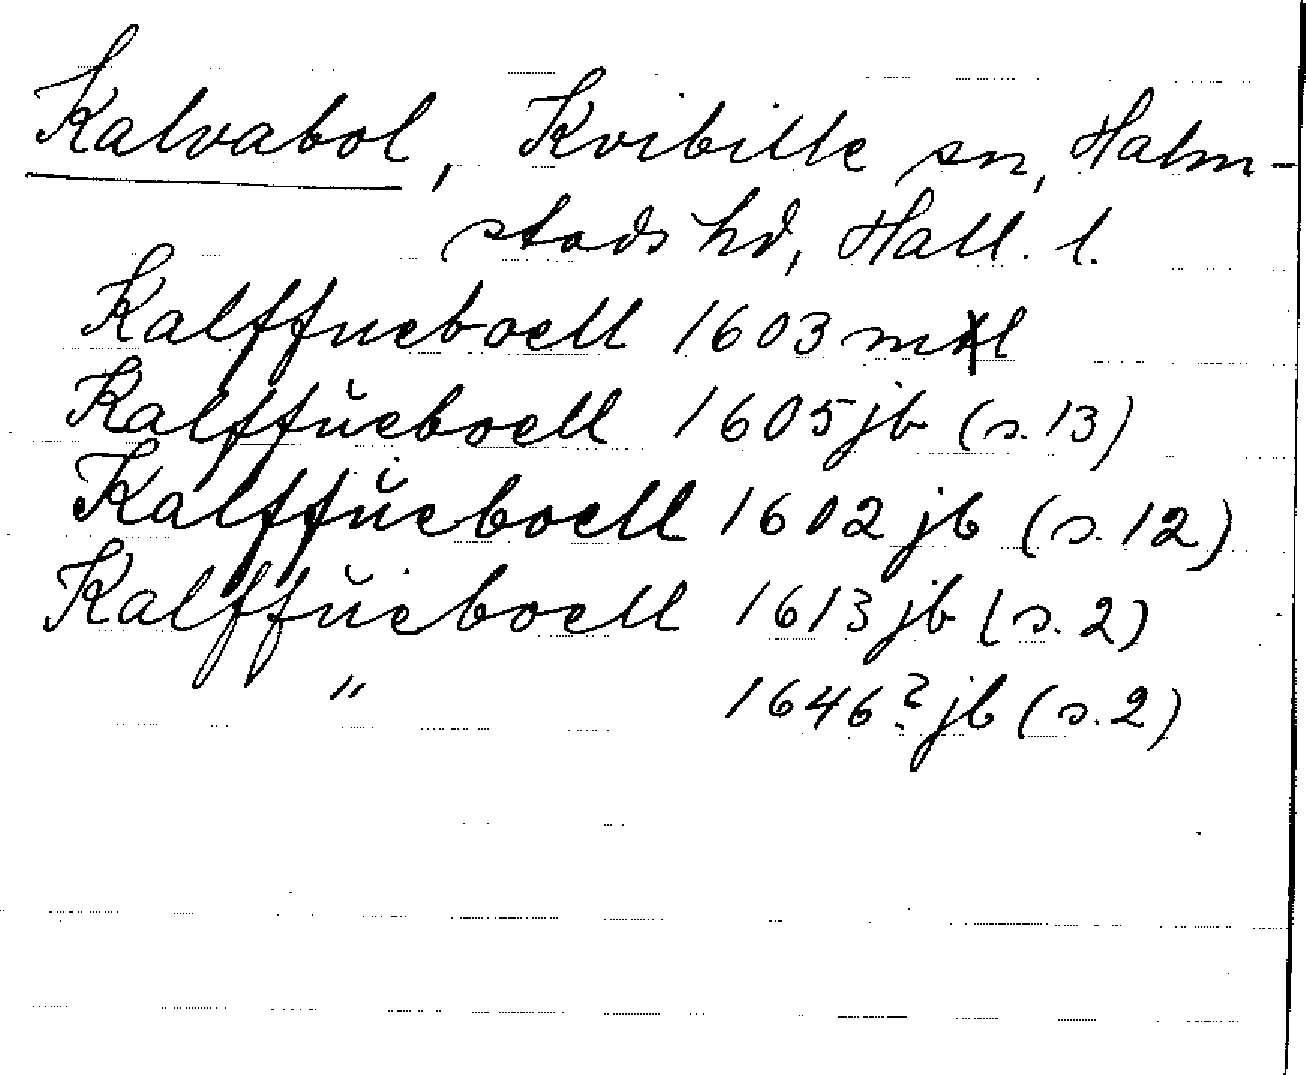 Kalvabol, Kvibille sn, Halm-
stads hd, Hall. l.
Kalffueboell 1603 mtl
Kalffŭeboell 1605 jb (s. 13)
Kalffŭeboell 1602 jb (s. 12)
Kalffŭeboell 1613 jb (s. 2)
" 1646? jb (s. 2)